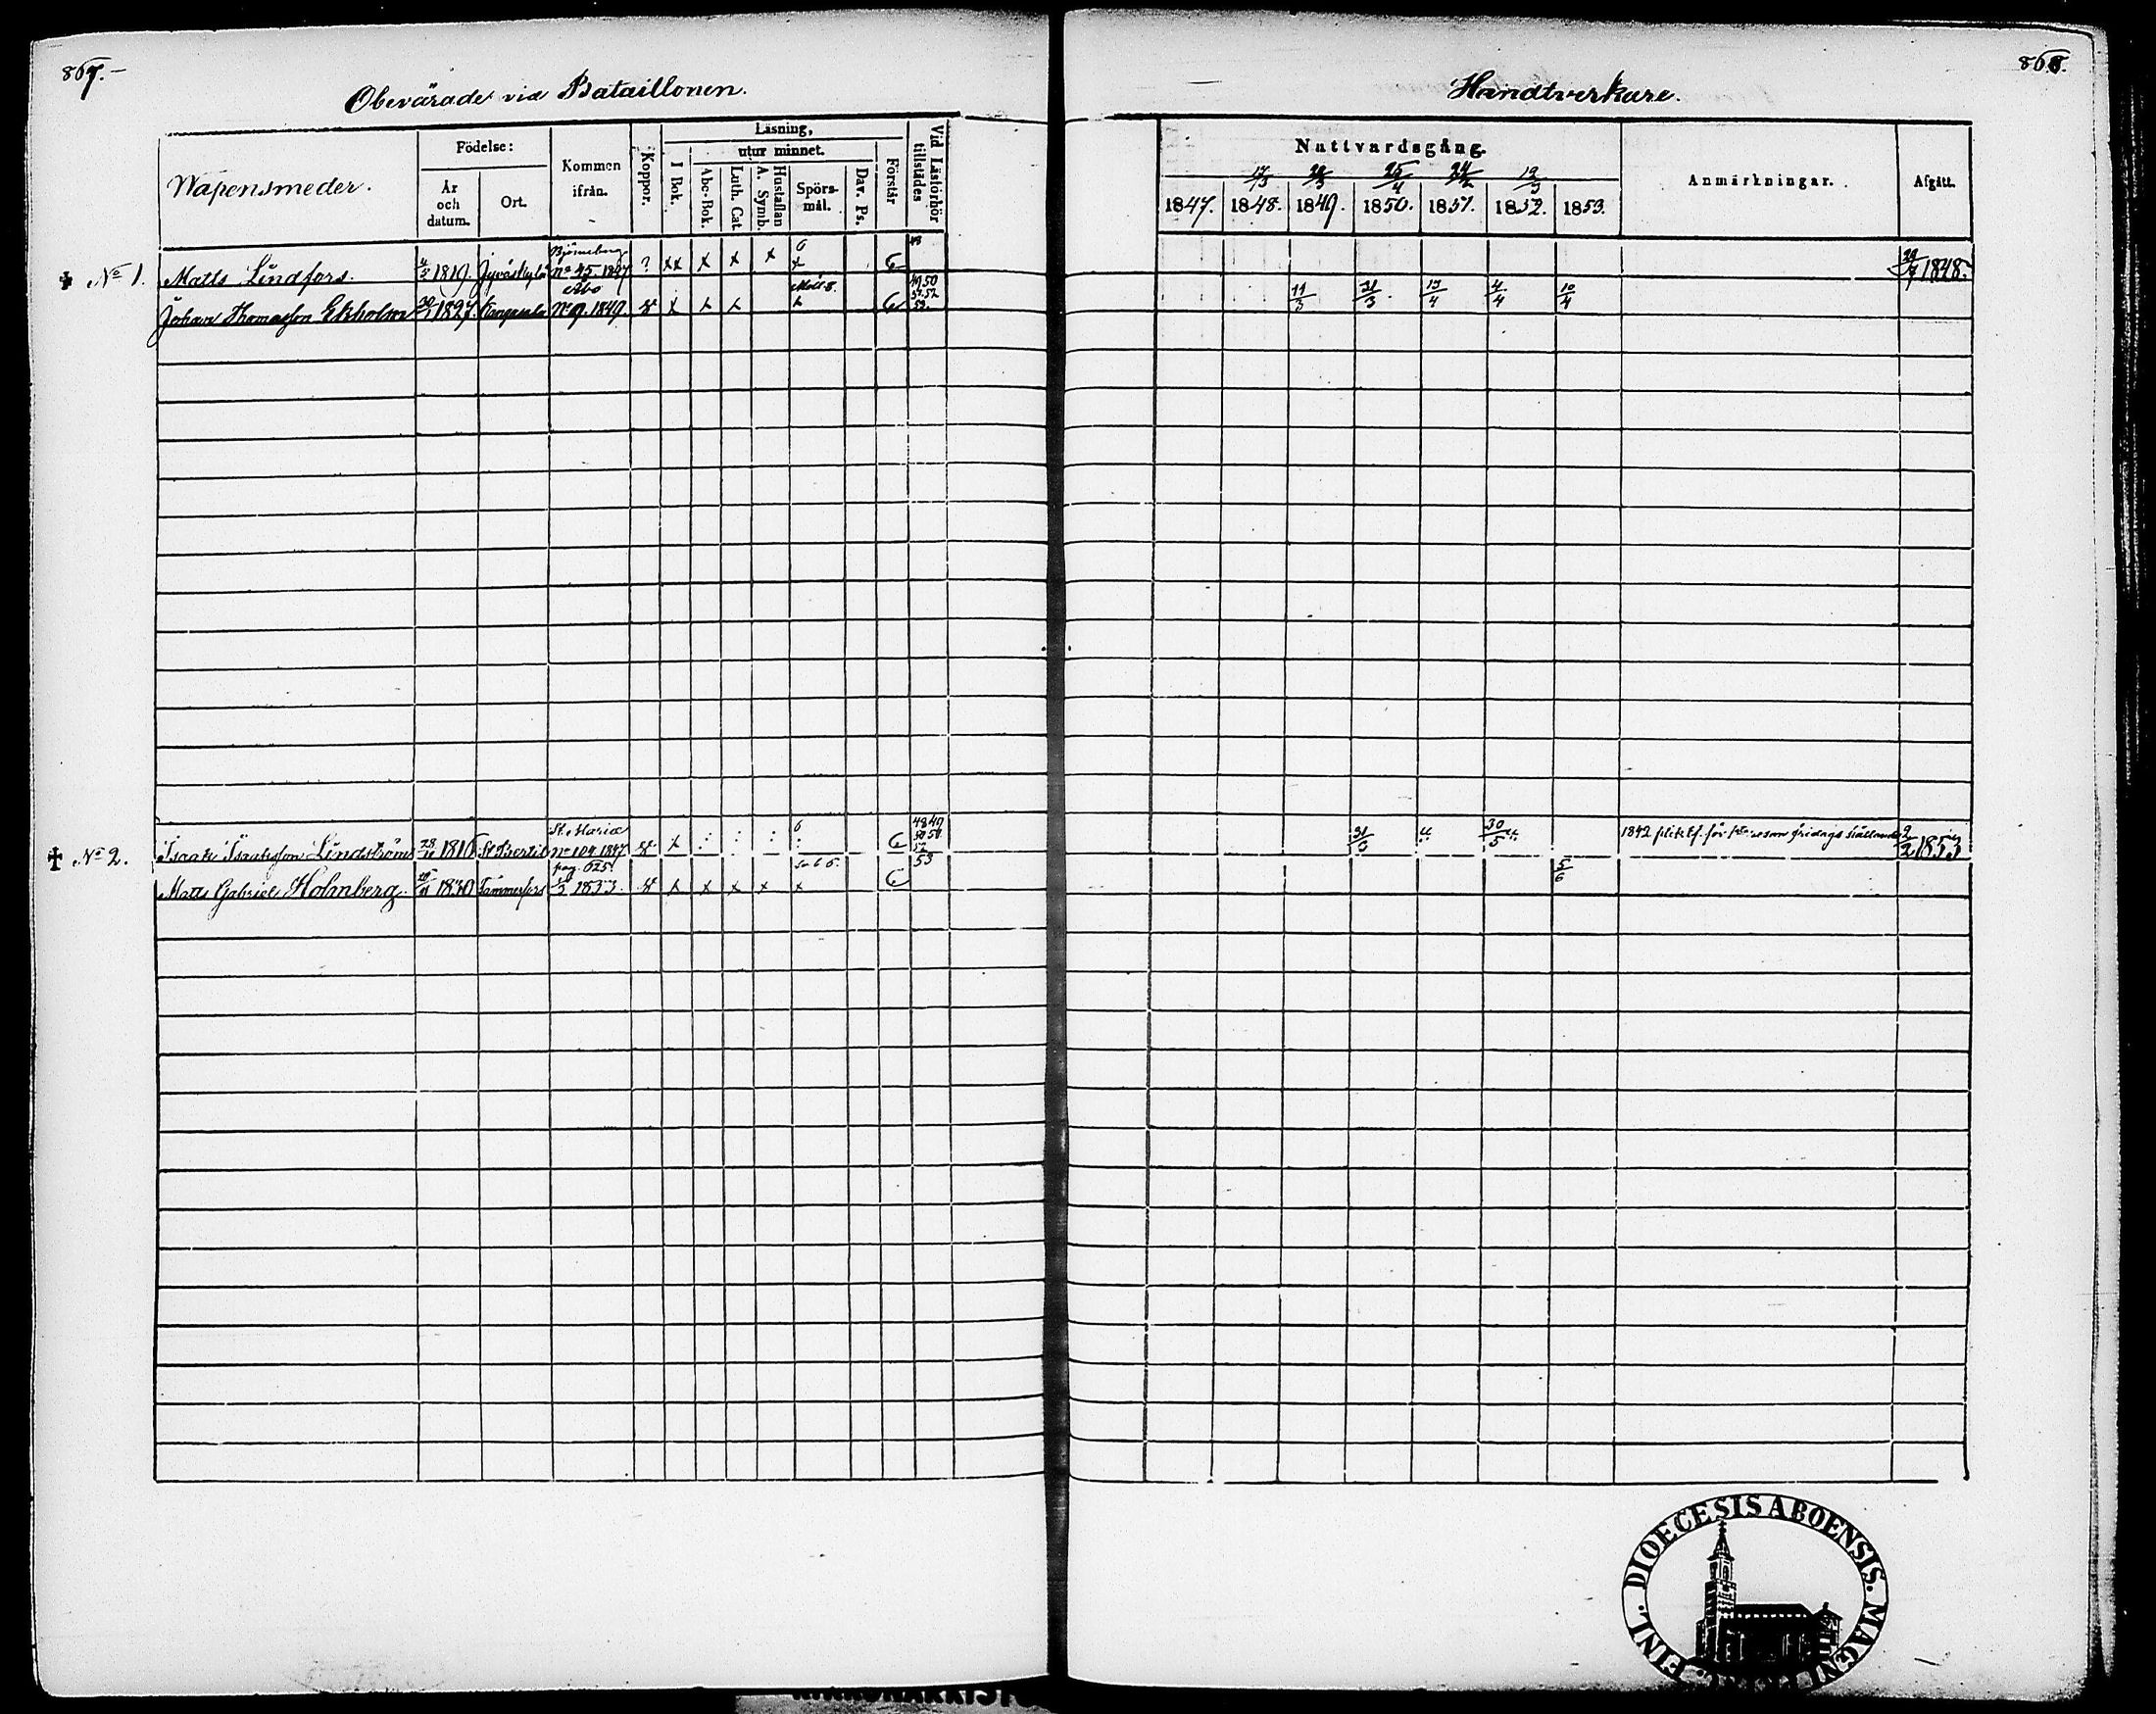 867.-
Obevärade vid Bataillonen.
Wapensmeder.
Födelse:
År och datum.
Ort.
Kommen ifrån.
Koppor.
Läsning,
utur minnet.
I Bok.
Abc-Bok.
Luth. Cat.
Hustaflan A. Symb.
Spörs-mål.
Dav. Ps.
Förstår
Vid Läsförhör tillstädes
Björneborg 6 48
No 1. Matts Lindfors. 1819. Jyväskylä No 45 1847 ? xx x x x x
Åbo 49 50
51.52
Johan Thomasson Ekholm 1827 Kangasala No 9. 1849. x x x 53.
St. Mariæ 6 48 49
50 51
No 2. Isaak Isaaksson Lindström 1816 St Bertil No 104 1847 x 52
pag. 625. 53
Matts Gabriel Holmberg. 1830 Tammerfors 1853. x x x x x
868.
Handtverkare.
Nattvardsgång.
17/3 25/4 24/2 12/3
1847. 1848. 1849. 1850. 1851. 1852. 1853.
Anmärkningar.
Afgått.
1848.
11/3 31/3 13/4 4/4 10/4
31/3 30/5 1842 1853
5/6
FINL. DIOECESIS ABOENSIS. MAGNI